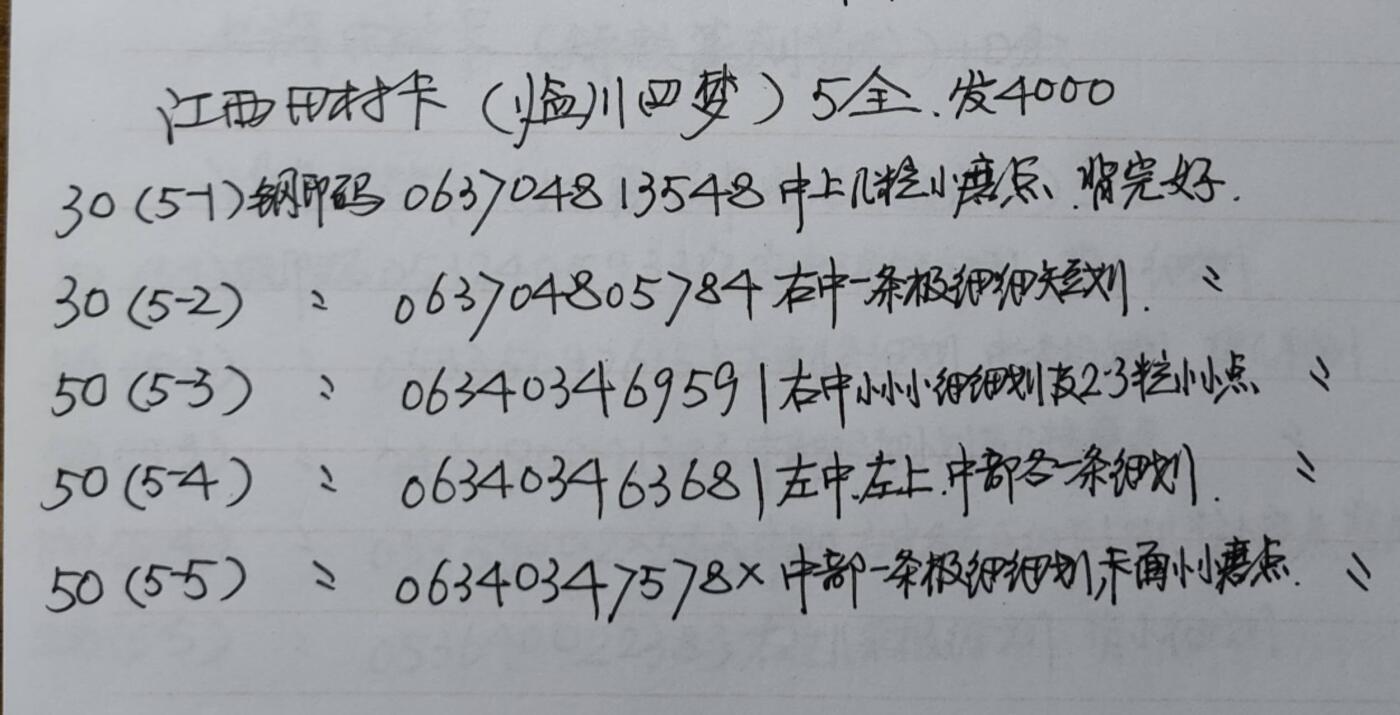 江西田村卡（临川四梦）5全.发4000
30（5-1）钢印码 063704813548 中上几粒小磨点.背完好.
30（5-2） 〃 063704805784 右中一条极细细短划. 〃
50（5-3） 〃 063403469591 右中小小小细细划及2·3粒小小点 〃
50（5-4） 〃 063403463681 左中.左上.中部各一条细划. 〃
50（5-5） 〃 06340347578× 中部一条极细细划,卡面小小磨点. 〃